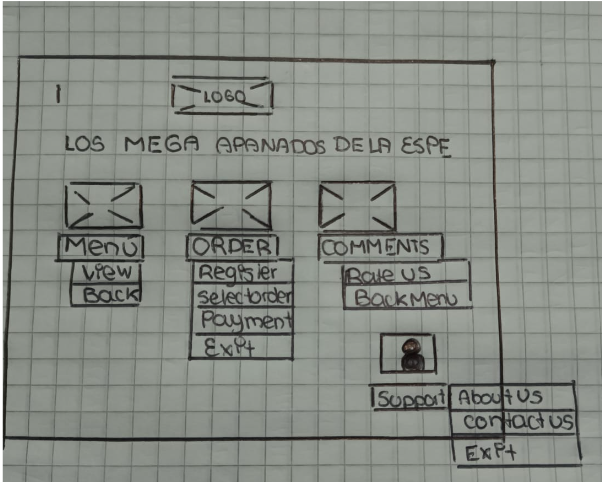 1
LOGO
LOS MEGA APANADOS DE LA ESPE
Menu
View
Back
ORDER
Register
selectorder
Payment
Exit
COMMENTS
Rate US
Back Menu
Support
About US
contact US
Exit